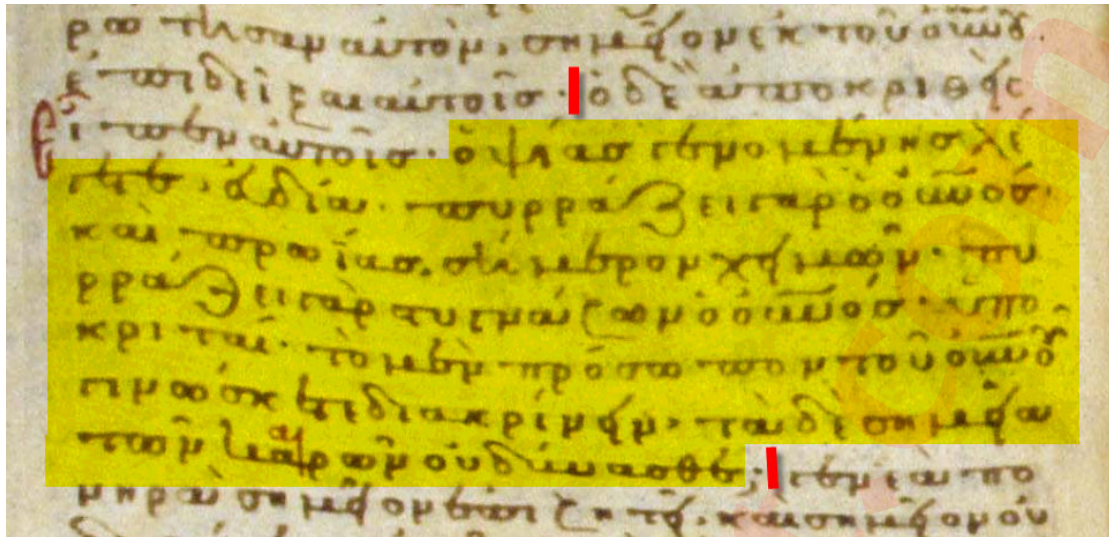 ρωτησαν αὐτὸν, σημεῖον ἐκ τοῦ οὐνοῦ
ἐπιδεῖξαι αὐτοῖς · ὁ δὲ ἀποκριθεὶς
εἶπεν αὐτοῖς · ὀψίας γενομένης λέ
γετε · εὐδία · πυρράζει γὰρ ὁ οὐνός ·
καὶ πρωΐας, σήμερον χειμών · πυ
ρράζει γὰρ στυγνάζων ὁ οὐνός · ὑπο
κριταί · τὸ μὲν πρόσωπον τοῦ οὐνοῦ
γινώσκετε διακρίνειν, τὰ δὲ σημεῖα
τῶν καιρῶν οὐ δύνασθε · γενεὰ πο
νηρὰ σημεῖον ἐπιζητεῖ, καὶ σημεῖον οὐ